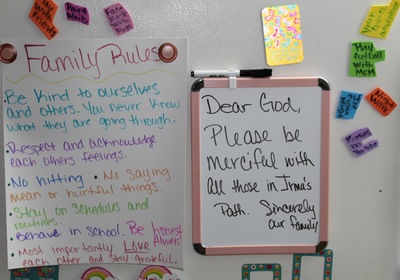 Family Rules
• Be Kind to ourselves
and others. You never know
what they are going through.
• Respect and acknowledge
each others feelings.
• No hitting • No saying
mean or hurtful things.
• Stay on schedules and
routines.
• Behave in school. Be honest
Always
• Most importantly Love
each other and stay grateful.
Dear God,
Please be
merciful with
all those in Irma's
Path. Sincerely
our family
Play
football
with
MCM